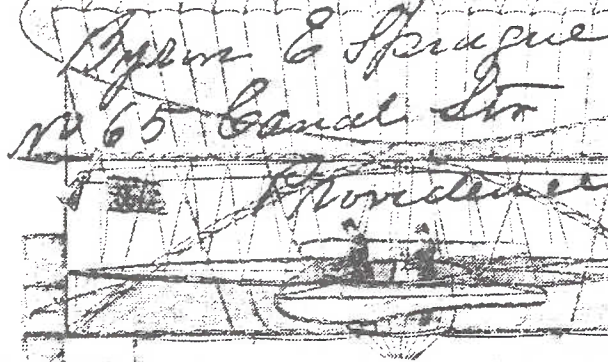 Byron E Sprague
No 65 Canal Str
Providence